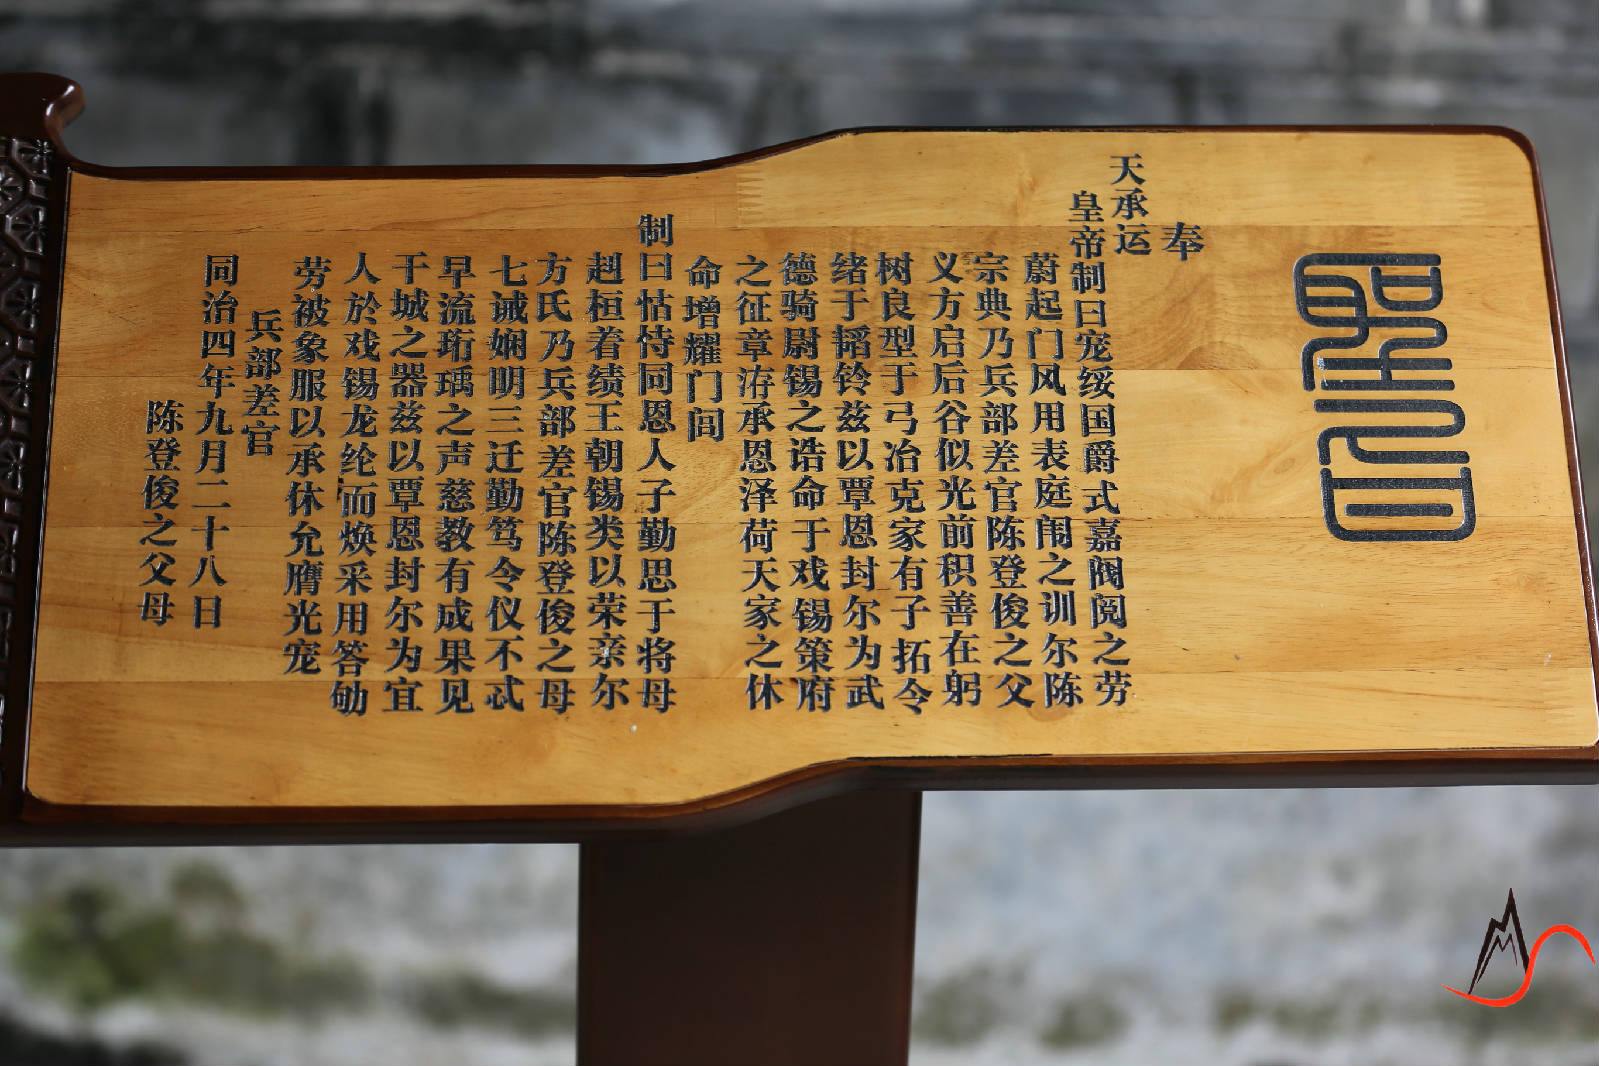 聖旨
奉
天承运
皇帝制曰宠绥国爵式嘉阀阅之劳
蔚起门风用表庭闱之训尔陈
宗典乃兵部差官陈登俊之父
义方启后谷似光前积善在躬
树良型于弓冶克家有子拓令
绪于韬铃兹以覃恩封尔为武
德骑尉锡之诰命于戏锡策府
之征章洊承恩泽荷天家之休
命增耀门闾
制曰怙恃同恩人子勤思于将母
赳桓着绩王朝锡类以荣亲尔
方氏乃兵部差官陈登俊之母
七诫娴明三迁勤笃令仪不忒
早流珩瑀之声慈教有成果见
干城之器兹以覃恩封尔为宜
人於戏锡龙纶而焕采用答劬
劳被象服以承休允膺光宠
兵部差官
同治四年九月二十八日
陈登俊之父母